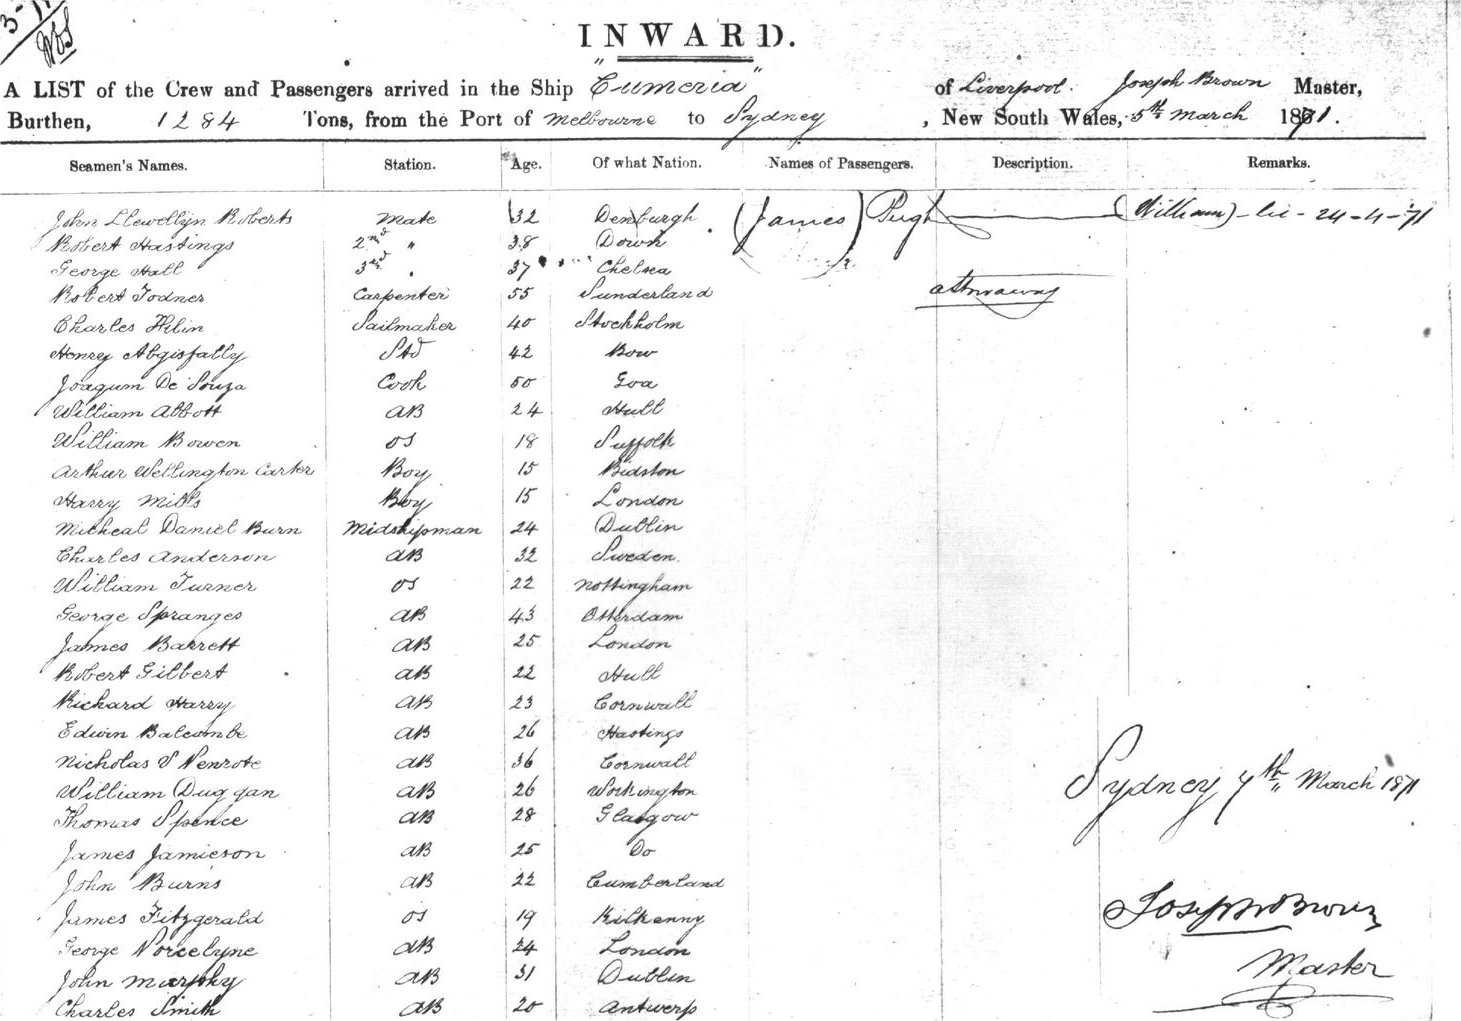 INWARD.
A LIST of the Crew and Passengers arrived in the Ship "Cumeria" of Liverpool. Joseph Brown Master,
Burthen, 1284 Tons, from the Port of Melbourne to Sydney, New South Wales, 5th March 1871.
Seamen's Names. Station. Age. Of what Nation. Names of Passengers. Description. Remarks.
John Llewellyn Roberts Mate 32 Denburgh (James) Pugh (William) - lic - 24-4-71
Robert Hastings 2nd " 38 Down
George Hall 3rd " 37 Chelsea
Robert Todner Carpenter 55 Sunderland
Charles Hilin Sailmaker 40 Stockholm
Henry Std 42 Bow
Joaqum De Souza Cook 50 Goa
William Abbott AB 24 Hull
William Bowen OS 18 Suffolk
Arthur Wellington Carter Boy 15 Bidston
Harry Mills Boy 15 London
Micheal Daniel Burn Midshipman 24 Dublin
Charles Anderson AB 32 Sweden.
William Turner OS 22 Nottingham
George Spranges AB 43 Otterdam
James Barrett AB 25 London
Robert Gilbert AB 22 Hull
Richard Harry AB 23 Cornwall
Edwin Balcombe AB 26 Hastings
Nicholas S Penrose AB 36 Cornwall
William Duggan AB 26 Workington
Thomas Spence AB 28 Glasgow
James Jamieson AB 25 Do
John Burns AB 22 Cumberland
James Fitzgerald OS 19 Kilkenny
George Norcelyne AB 24 London
John Murphy AB 31 Dublin
Charles Smith AB 20 Antwerp
Sydney 7th March 1871
Joseph Brown
Master